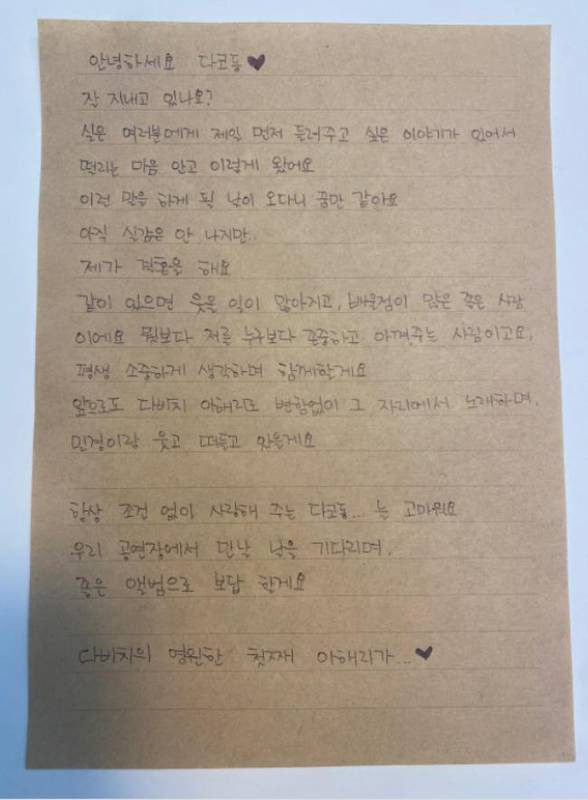 안녕하세요 다코동♥
잘 지내고 있나요?
실은 여러분에게 제일 먼저 들려주고 싶은 이야기가 있어서
떨리는 마음 안고 이렇게 왔어요
이런 말을 하게 될 날이 오다니 꿈만 같아요
아직 실감은 안 나지만
제가 결혼을 해요
같이 있으면 웃을 일이 많아지고, 배울점이 많은 좋은 사람
이에요 뭣보다 저를 누구보다 존중하고 아껴주는 사람이고요.
평생 소중하게 생각하며 함께할게요
앞으로도 다비치 이해리로 변함없이 그 자리에서 노래하며,
민경이랑 웃고 떠들고 있을게요
항상 조건 없이 사랑해 주는 다코동... 늘 고마워요
우리 공연장에서 만날 날을 기다리며,
좋은 앨범으로 보답 할게요
다비치의 영원한 첫째 이해리가...♥